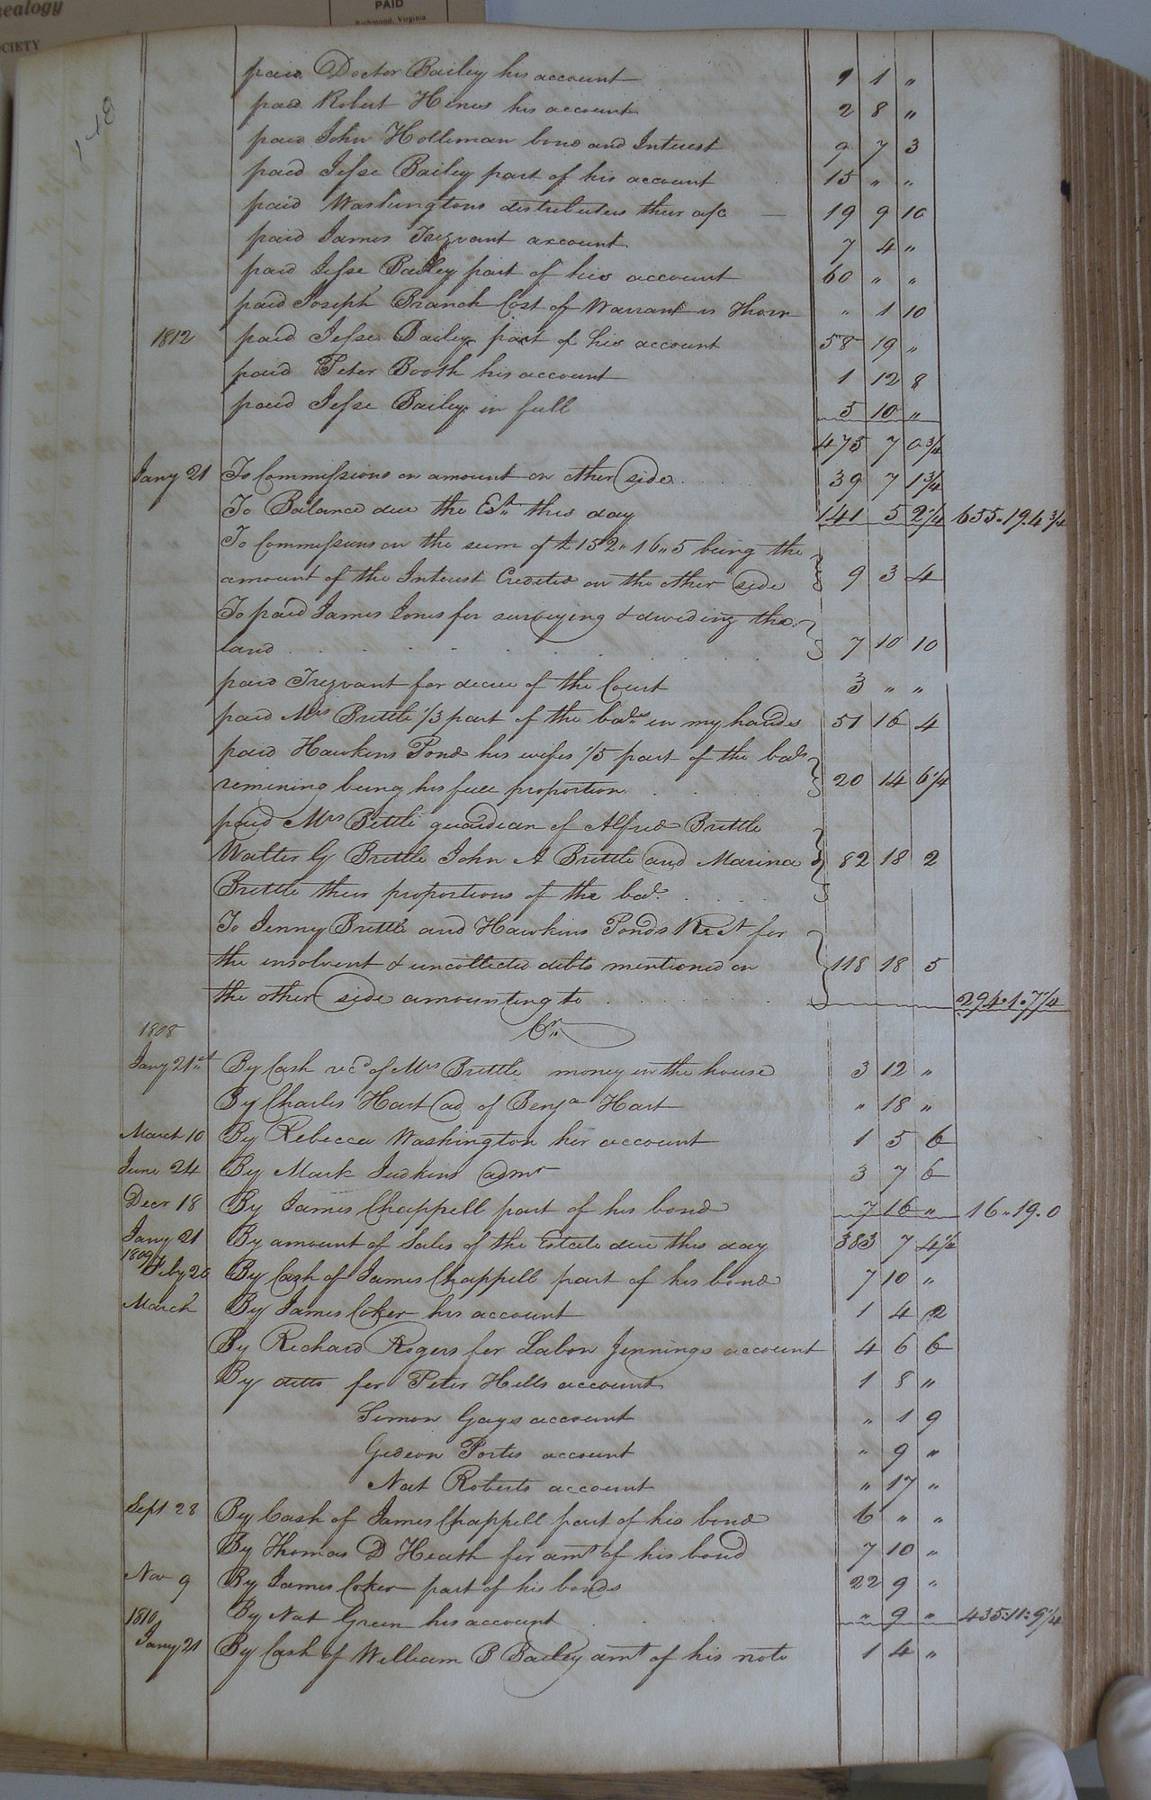 nealogy
OCIETY
PAID
Richmond, Virginia
148
paid Doctor Bailey his account 9 1 "
paid Robert Hines his account 2 8 "
paid John Holleman bond and Interest 9 7 3
paid Jesse Bailey part of his account 15 " "
paid Washingtons distributees their a/c 19 9 10
paid James Trezvant account 7 4 "
paid Jesse Bailey part of his account 60 " "
paid Joseph Branch Cost of Warrant vs Thorn " 1 10
1812 paid Jesse Bailey part of his account 58 19 "
paid Peter Booth his account 1 12 8
paid Jesse Bailey in full 5 10 "
475 7 0 3/4
Jany 21 To Commissions on amount on other side 39 7 1 3/4
To Balance due the Est. this day 141 5 2 1/4 655.19.4 3/4
To Commissions on the sum of £152"16"5 being the
amount of the Interest Credited on the other side 9 3 4
To paid James Jones for surveying & dividing the
land 7 10 10
paid Trezvant for decree of the Court 3 " "
paid Mrs Brittle 1/3 part of the bale in my hands 51 16 4
paid Hawkins Pond his wifes 1/5 part of the bale
remining being his full proportion 20 14 6 1/4
paid Mrs Brittle guardian of Alfred Brittle
Walter G Brittle John A Brittle and Marina 82 18 2
Brittle their proportions of the bal.
To Jenny Brittle and Hawkins Ponds Rect for
the insolvent & uncollected debts mentioned on 118 18 5
the other side amounting to 294.1.7 1/4
Cr.
1808
Jany 21st By Cash recd of Mrs Brittle money in the house 3 12 "
By Charles Hart ad of Benja Hart " 18 "
March 10 By Rebecca Washington her account 1 5 6
June 24 By Mark Judkins admr 3 7 6
Decr 18 By James Chappell part of his bond 7 16 " 16.19.0
Jany 21 By amount of Sales of the Estate due this day 383 7 4 1/2
1809
Feby 20 By Cash of James Chappell part of his bond 7 10 "
March By James Coker his account 1 4 2
By Richard Rogers for Labon Jennings account 4 6 6
By ditto for Peter Hills account 1 8 "
Simon Gays account " 1 9
Gideon Portis account " 9 "
Nat Roberts account " 17 "
Sept 28 By Cash of James Chappell part of his bond 6 " "
By Thomas D Heath for amt of his bond 7 10 "
Nov 9 By James Coker part of his bonds 22 9 "
1810 By Nat Green his account " 9 " 435:11:9 1/4
Jany 21 By Cash of William B Bailey amt of his note 1 4 "